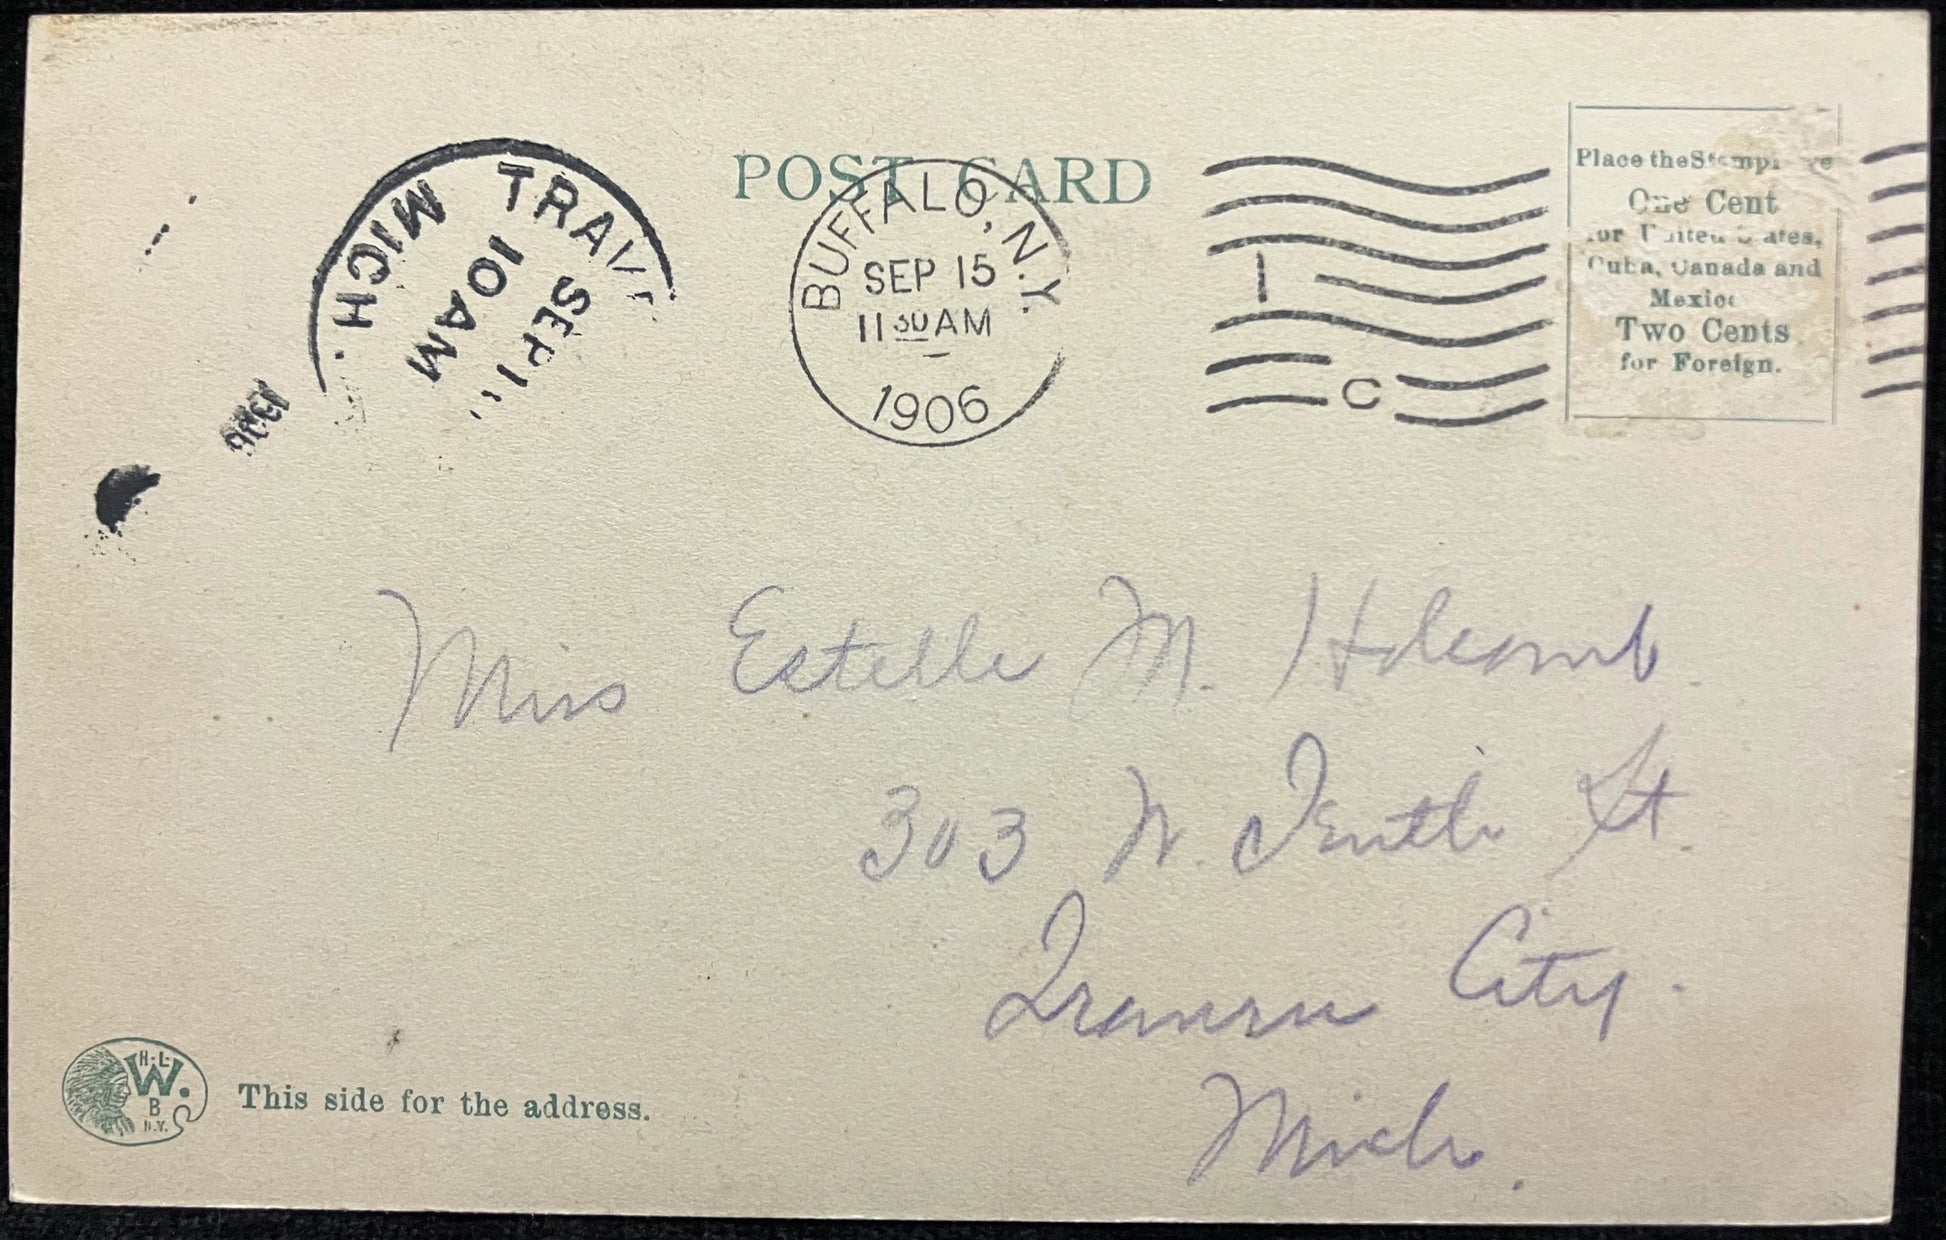 POST CARD
TRAV
MICH.
SEP 1
10 AM
BUFFALO, N.Y.
SEP 15
11 30 AM
1906
1
C
Place the Stamp
One Cent
for United States,
Cuba, Canada and
Mexico
Two Cents
for Foreign.
Miss Estelle M. Holcomb.
303 W. Tenth St.
Traverse City.
Mich.
H-L-
W.
B
N.Y.
This side for the address.